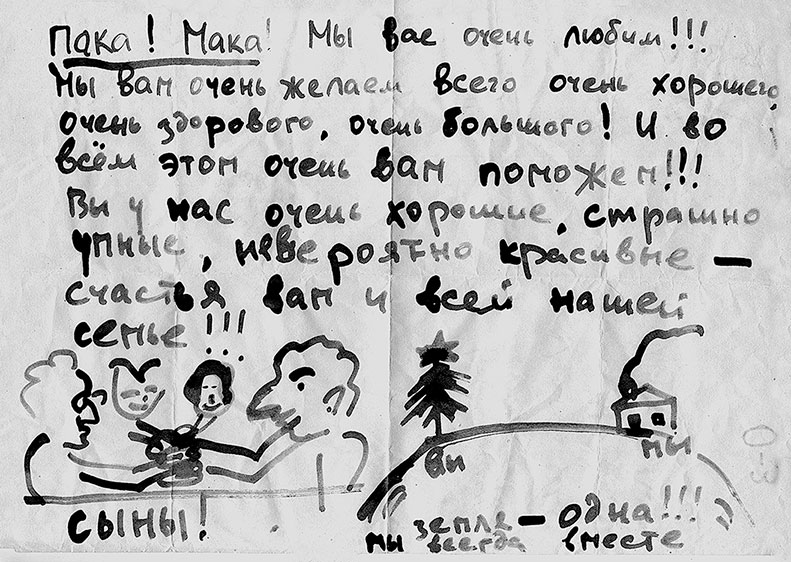 Пака! Мака! Мы вас очень любим!!!
Мы вам очень желаем всего очень хорошего,
очень здорового, очень большого! И во
всём этом очень вам поможем!!!
Вы у нас очень хорошие, страшно
упные, невероятно красивые —
счастья вам и всей нашей
семье!!!
вы
мы
сыны!
земля — одна!!!
мы всегда вместе